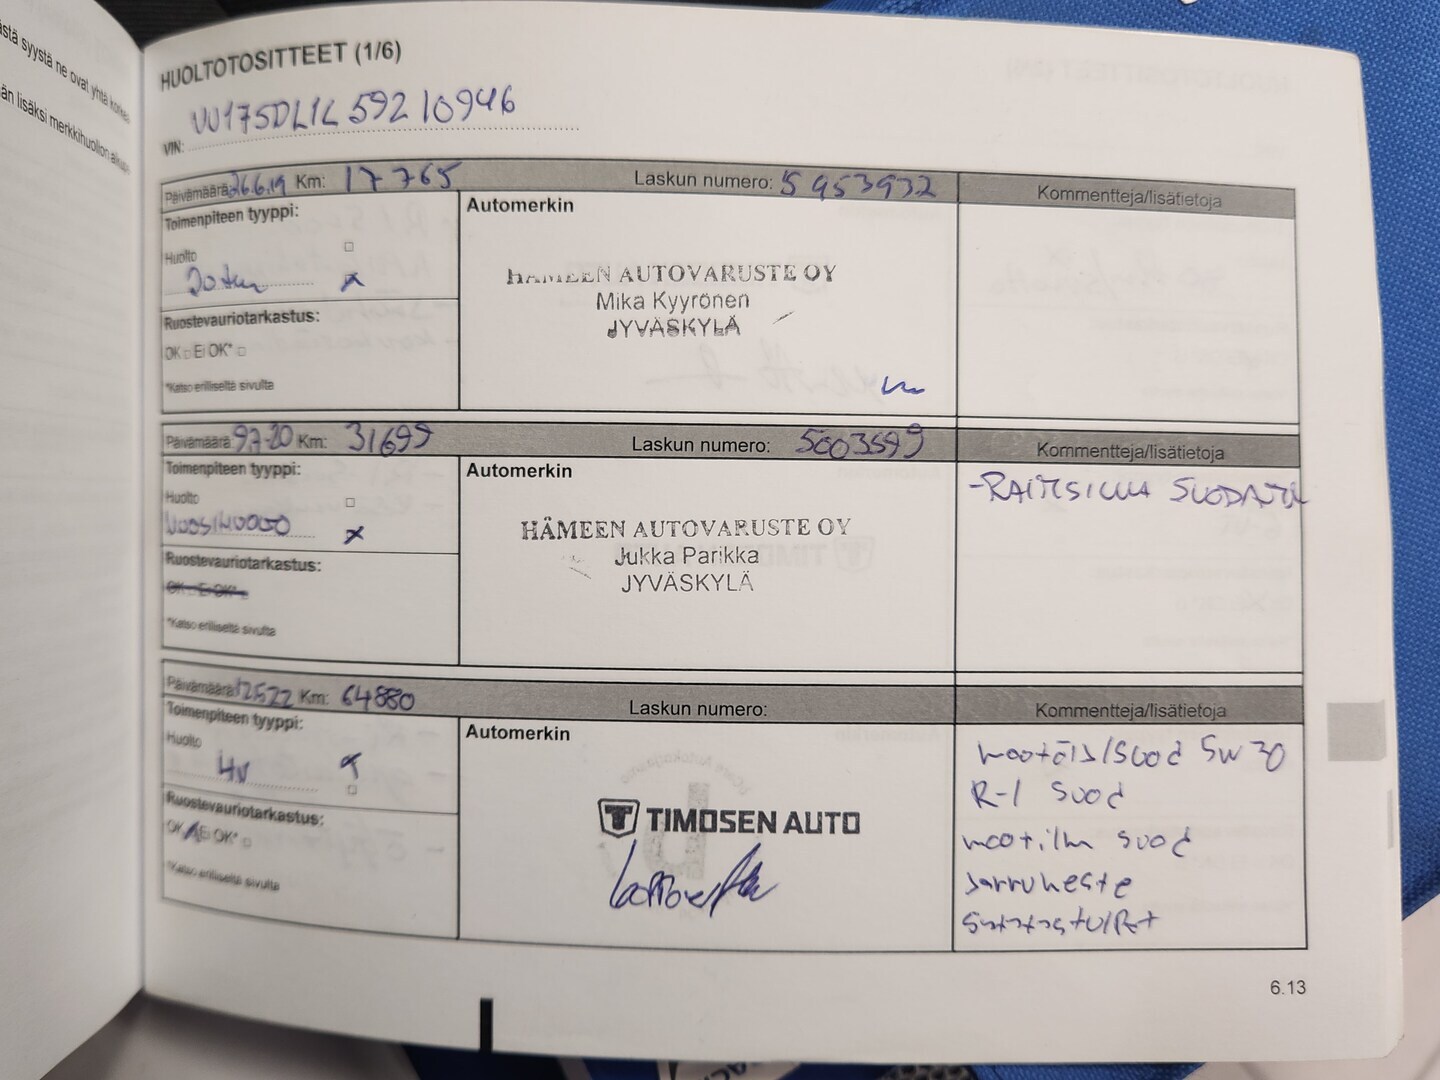 ästä syystä ne ovat yhtä
än lisäksi merkkihuollon
HUOLTOTOSITTEET (1/6)
VIN:
Päivämäärä: 26.6.19 Km: 17765 Laskun numero: 5953932 Kommentteja/lisätietoja
Toimenpiteen tyyppi:
Automerkin
Huolto
HÄMEEN AUTOVARUSTE OY
Mika Kyyrönen
JYVÄSKYLÄ
Ruostevauriotarkastus:
OK □ Ei OK* □
*Katso erilliseltä sivulta
Päivämäärä: 9.7.20 Km: 31699 Laskun numero: 5003599 Kommentteja/lisätietoja
Toimenpiteen tyyppi:
Automerkin
Huolto
VUOSIHUOLTO
HÄMEEN AUTOVARUSTE OY
Jukka Parikka
JYVÄSKYLÄ
Ruostevauriotarkastus:
OK □ Ei OK* □
*Katso erilliseltä sivulta
Päivämäärä: 12.5.22 Km: 64880 Laskun numero: Kommentteja/lisätietoja
Toimenpiteen tyyppi:
Automerkin
Huolto
TIMOSEN AUTO
Ruostevauriotarkastus:
OK Ei OK* □
*Katso erilliseltä sivulta
moottöljy/suod 5W30
suod
mootilm suod
jarruneste
6.13